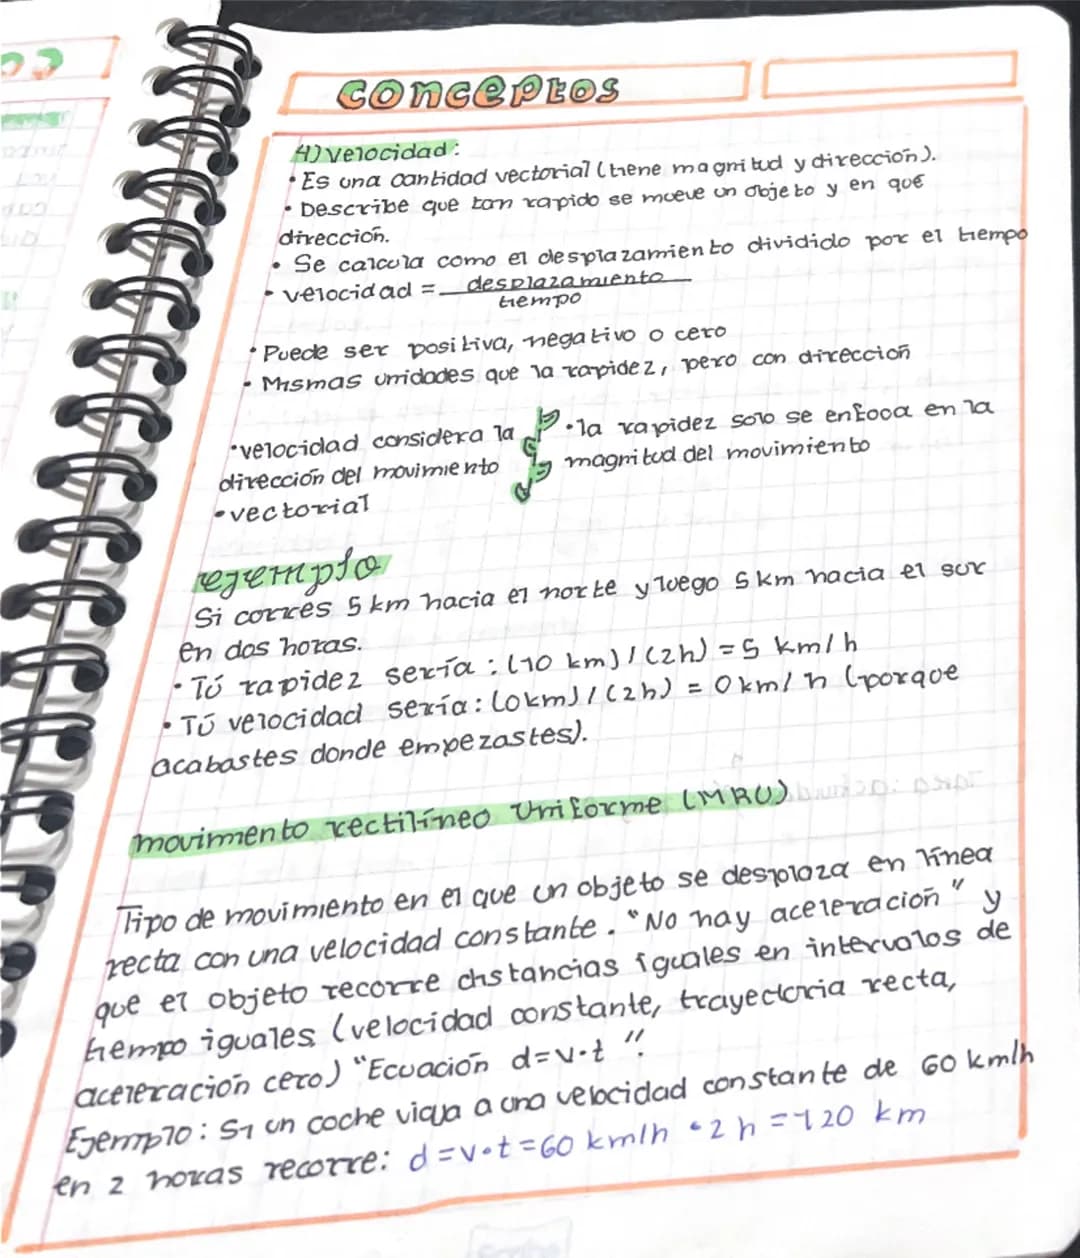 conceptos
4) velocidad:
• Es una cantidad vectorial (tiene magnitud y dirección).
• Describe que tan rapido se mueve un objeto y en qué
dirección.
• Se calcula como el desplazamiento dividido por el tiempo
• velocidad = desplazamiento
tiempo
• Puede ser positiva, negativo o cero
• Mismas unidades que la rapidez, pero con dirección
•velocidad considera la
dirección del movimiento
•vectorial
•la rapidez solo se enfoca en la
magnitud del movimiento
ejemplo
Si corres 5 km hacia el norte y luego 5 km hacia el sur
en dos horas.
• Tú rapidez sería : (10 km) / (2h) = 5 km/h
• Tú velocidad sería: (0km) / (2h) = 0 km/h (porque
acabastes donde empezastes).
movimento rectilíneo Uniforme (MRU)
Tipo de movimiento en el que un objeto se desplaza en línea
recta con una velocidad constante. "No hay aceleración" y
que el objeto recorre distancias iguales en intervalos de
tiempo iguales (velocidad constante, trayectoria recta,
aceleración cero) "Ecuación d=v•t".
Ejemplo: Si un coche viaja a una velocidad constante de 60 km/h
en 2 horas recorre: d=v•t=60 km/h • 2 h = 120 km